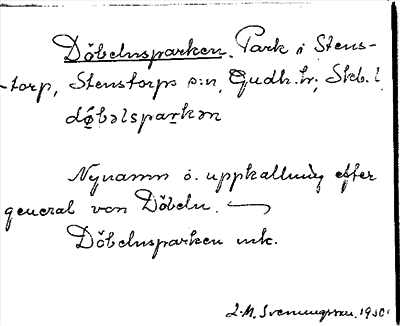 Döbelnsparken. Park i Stens-
-torp, Stenstorps s:n, Gudh. hr; Skb. l.
dø̨bəlsparkən
Nynamn o. uppkallning efter
general von Döbeln.
Döbelnsparken mk.
L.M. Svenungsson. 1930